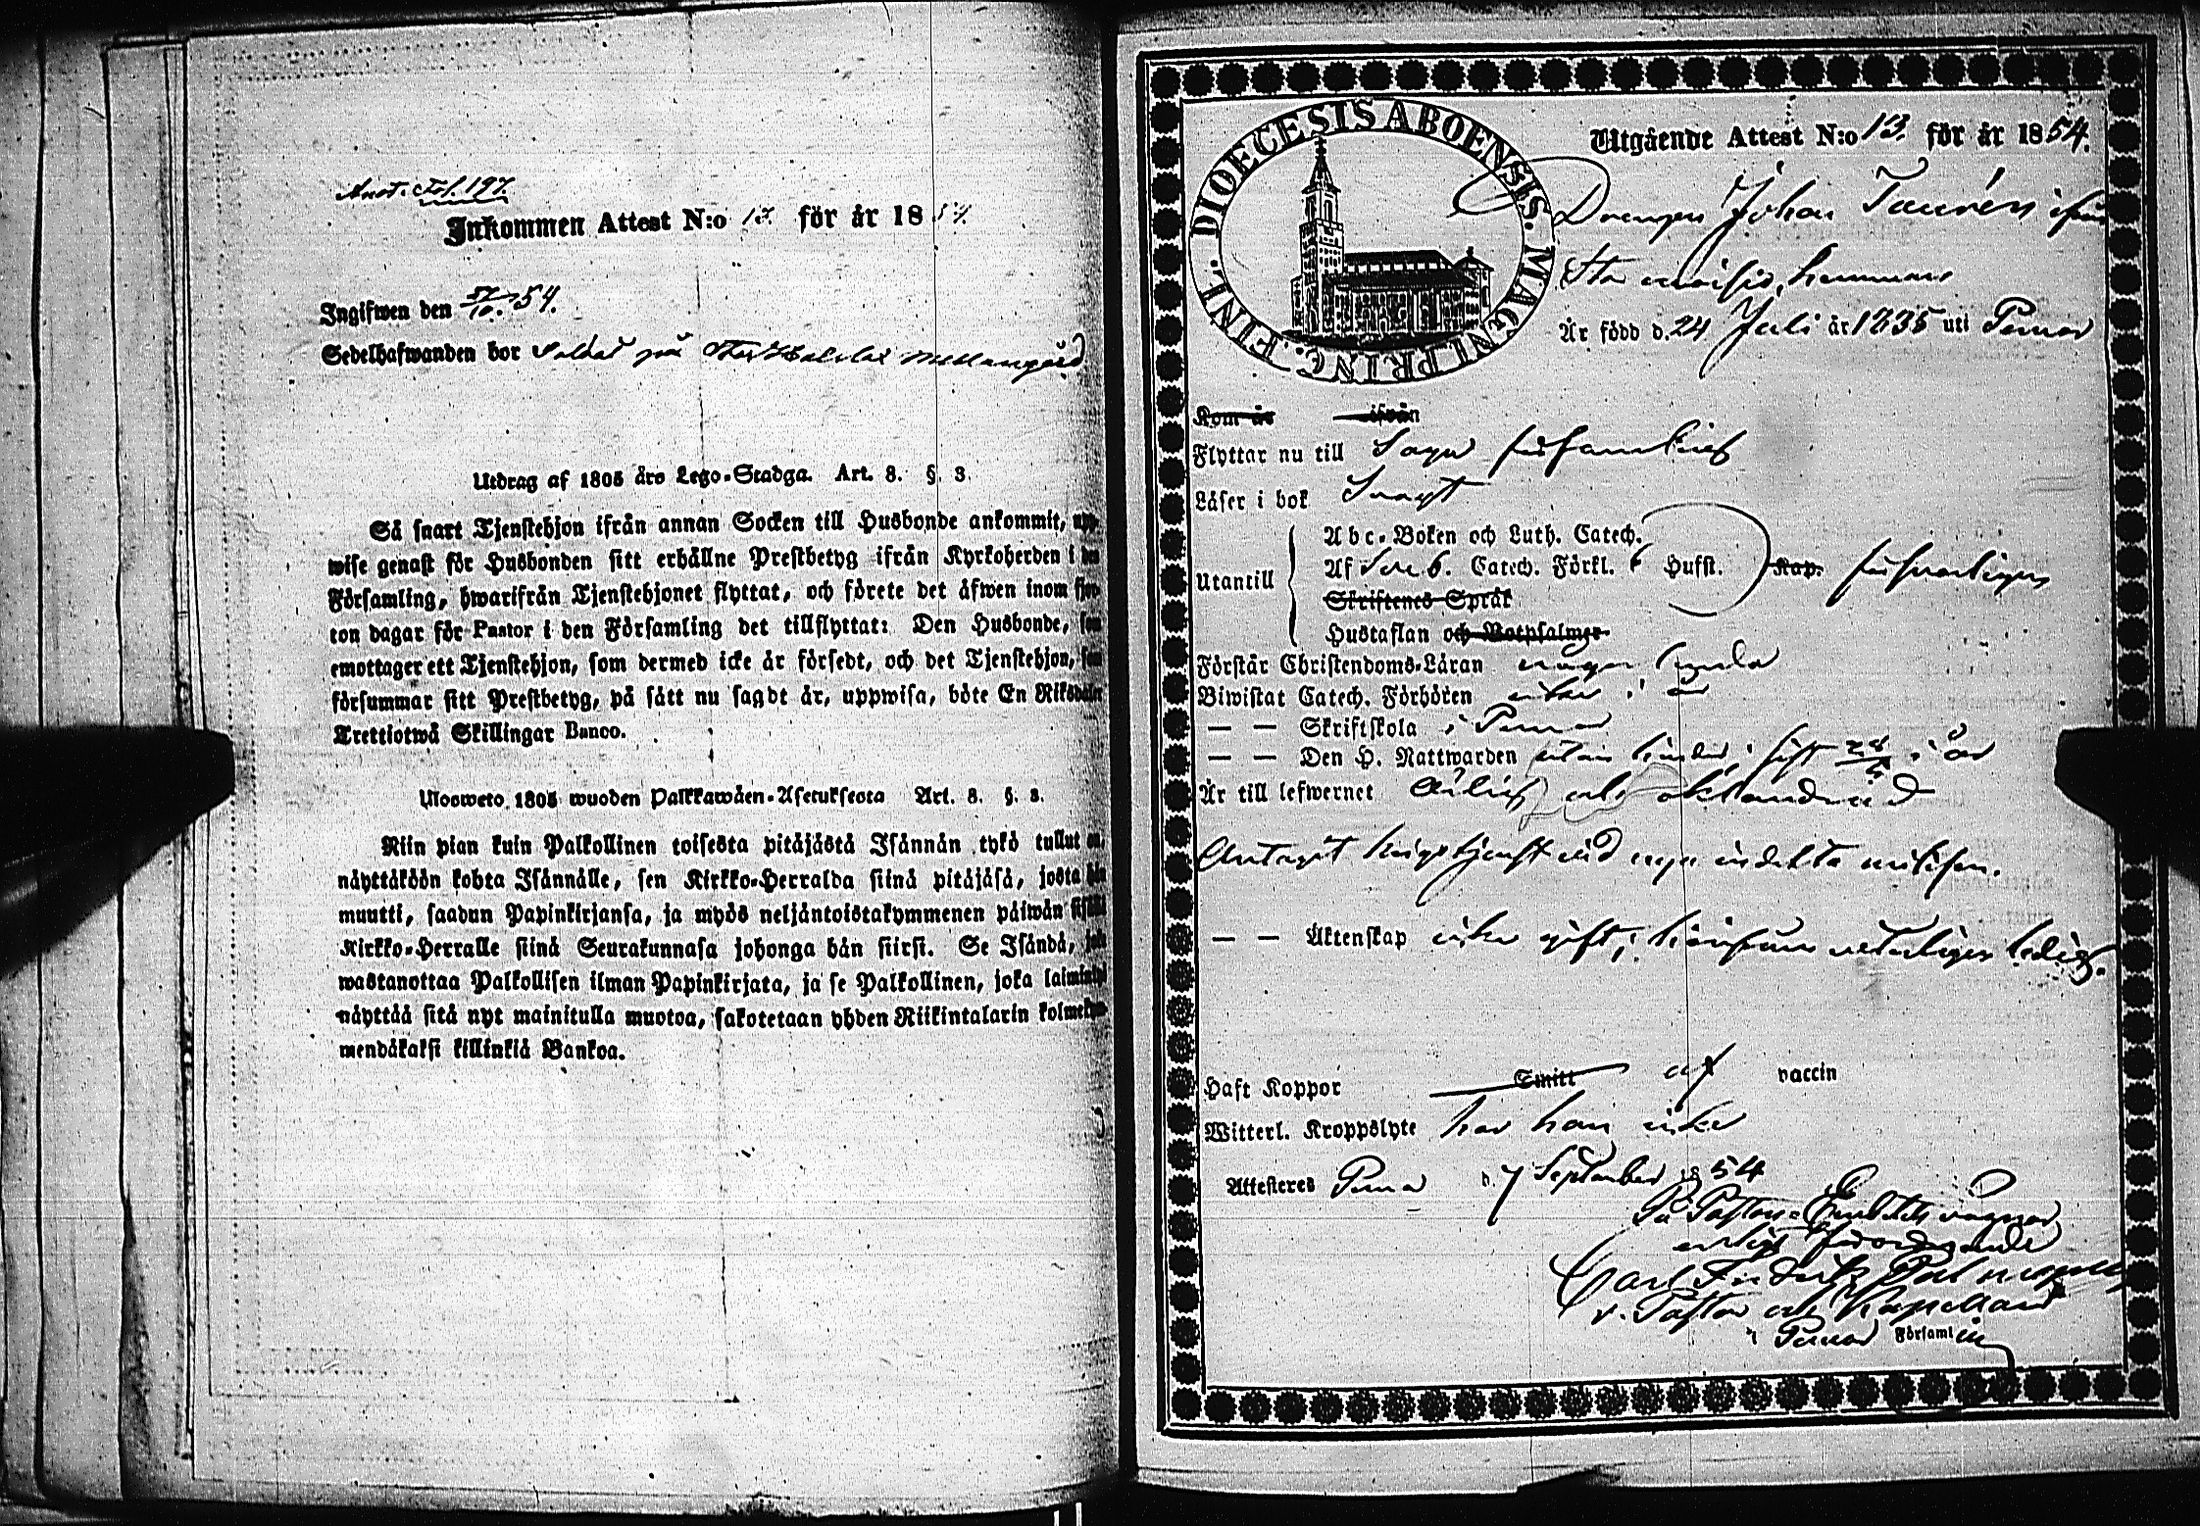 Annot. Fol. 197.
Inkommen Attest N:o 13 för år 1854
Ingifwen den 54.
Sedelhafwanden bor Soldat på Mellangård
Utdrag af 1805 års Lego-Stadga. Art. 8. §. 3.
Så snart Tjenstehjon ifrån annan Socken till Husbonde ankommit,
wise genast för Husbonden sitt erhållne Prestbetyg ifrån Kyrkoherden i
Församling, hwarifrån Tjenstehjonet flyttat, och förete det äfwen inom
ton dagar för Pastor i den Församling det tillflyttat: Den Husbonde,
emottager ett Tjenstehjon, som dermed icke är försedt, och det Tjenstehjon,
försummar sitt Prestbetyg, på sätt nu sagdt är, uppwisa, böte En Riksdaler
Trettiotwå Skillingar Banco.
Uloswето 1805 wuoden Palkkawäen-Asetuksesta Art. 8. §. 3.
Niin pian kuin Palkollinen toisesta pitäjästä Isännän tykö tullut on,
näyttäköön kohta Isännälle, sen Kirkko-Herralda siinä pitäjäsä, josta hän
muutti, saadun Papinkirjansa, ja myös neljäntoistakymmenen päiwän
Kirkko-Herralle siinä Seurakunnasa johonga hän siirsi. Se Isändä,
wastanottaa Palkollisen ilman Papinkirjata, ja se Palkollinen, joka
näyttää sitä nyt mainitulla muotoa, sakotetaan yhden Riikintalarin
mendäkaksi killinkiä Bankoa.
DIOECESIS ABOENSIS. MAGNI PRINC. FINL.
Utgående Attest N:o 13. för år 1854.
Drengen Johan Taurén ifrån
hemman
Är född d. 24 Juli år 1835 uti Pemar
Kom år ifrån
Flyttar nu till Sagu församling
Läser i bok Svagt
Utantill
Abc-Boken och Luth. Catech.
Af Sveb. Catech. Förkl. 6 Hufst. Kap. försvarligen
Skriftenes Språk
Hustaflan och Botpsalmer
Förstår Christendoms-Läran någorlunda
Biwistat Catech. Förhören icke i år
— — Skriftskola i Pemar
— — Den H. Nattwarden utan hinder, sist i år
Är till lefwernet ärlig och oklandrad
Antagit krigstjenst vid nya indelta militien.
— — Äktenskap icke gift; hinderlös ledig.
Haft Koppor Smitt af vaccin
Witterl. Kroppslyte har han icke
Attesteres Pemar d. 7 September 1854
På Pastors-Embetets vägnar
enligt förordnande
Carl Fredrik
v. Pastor och Kapellan
i Pemar Församling